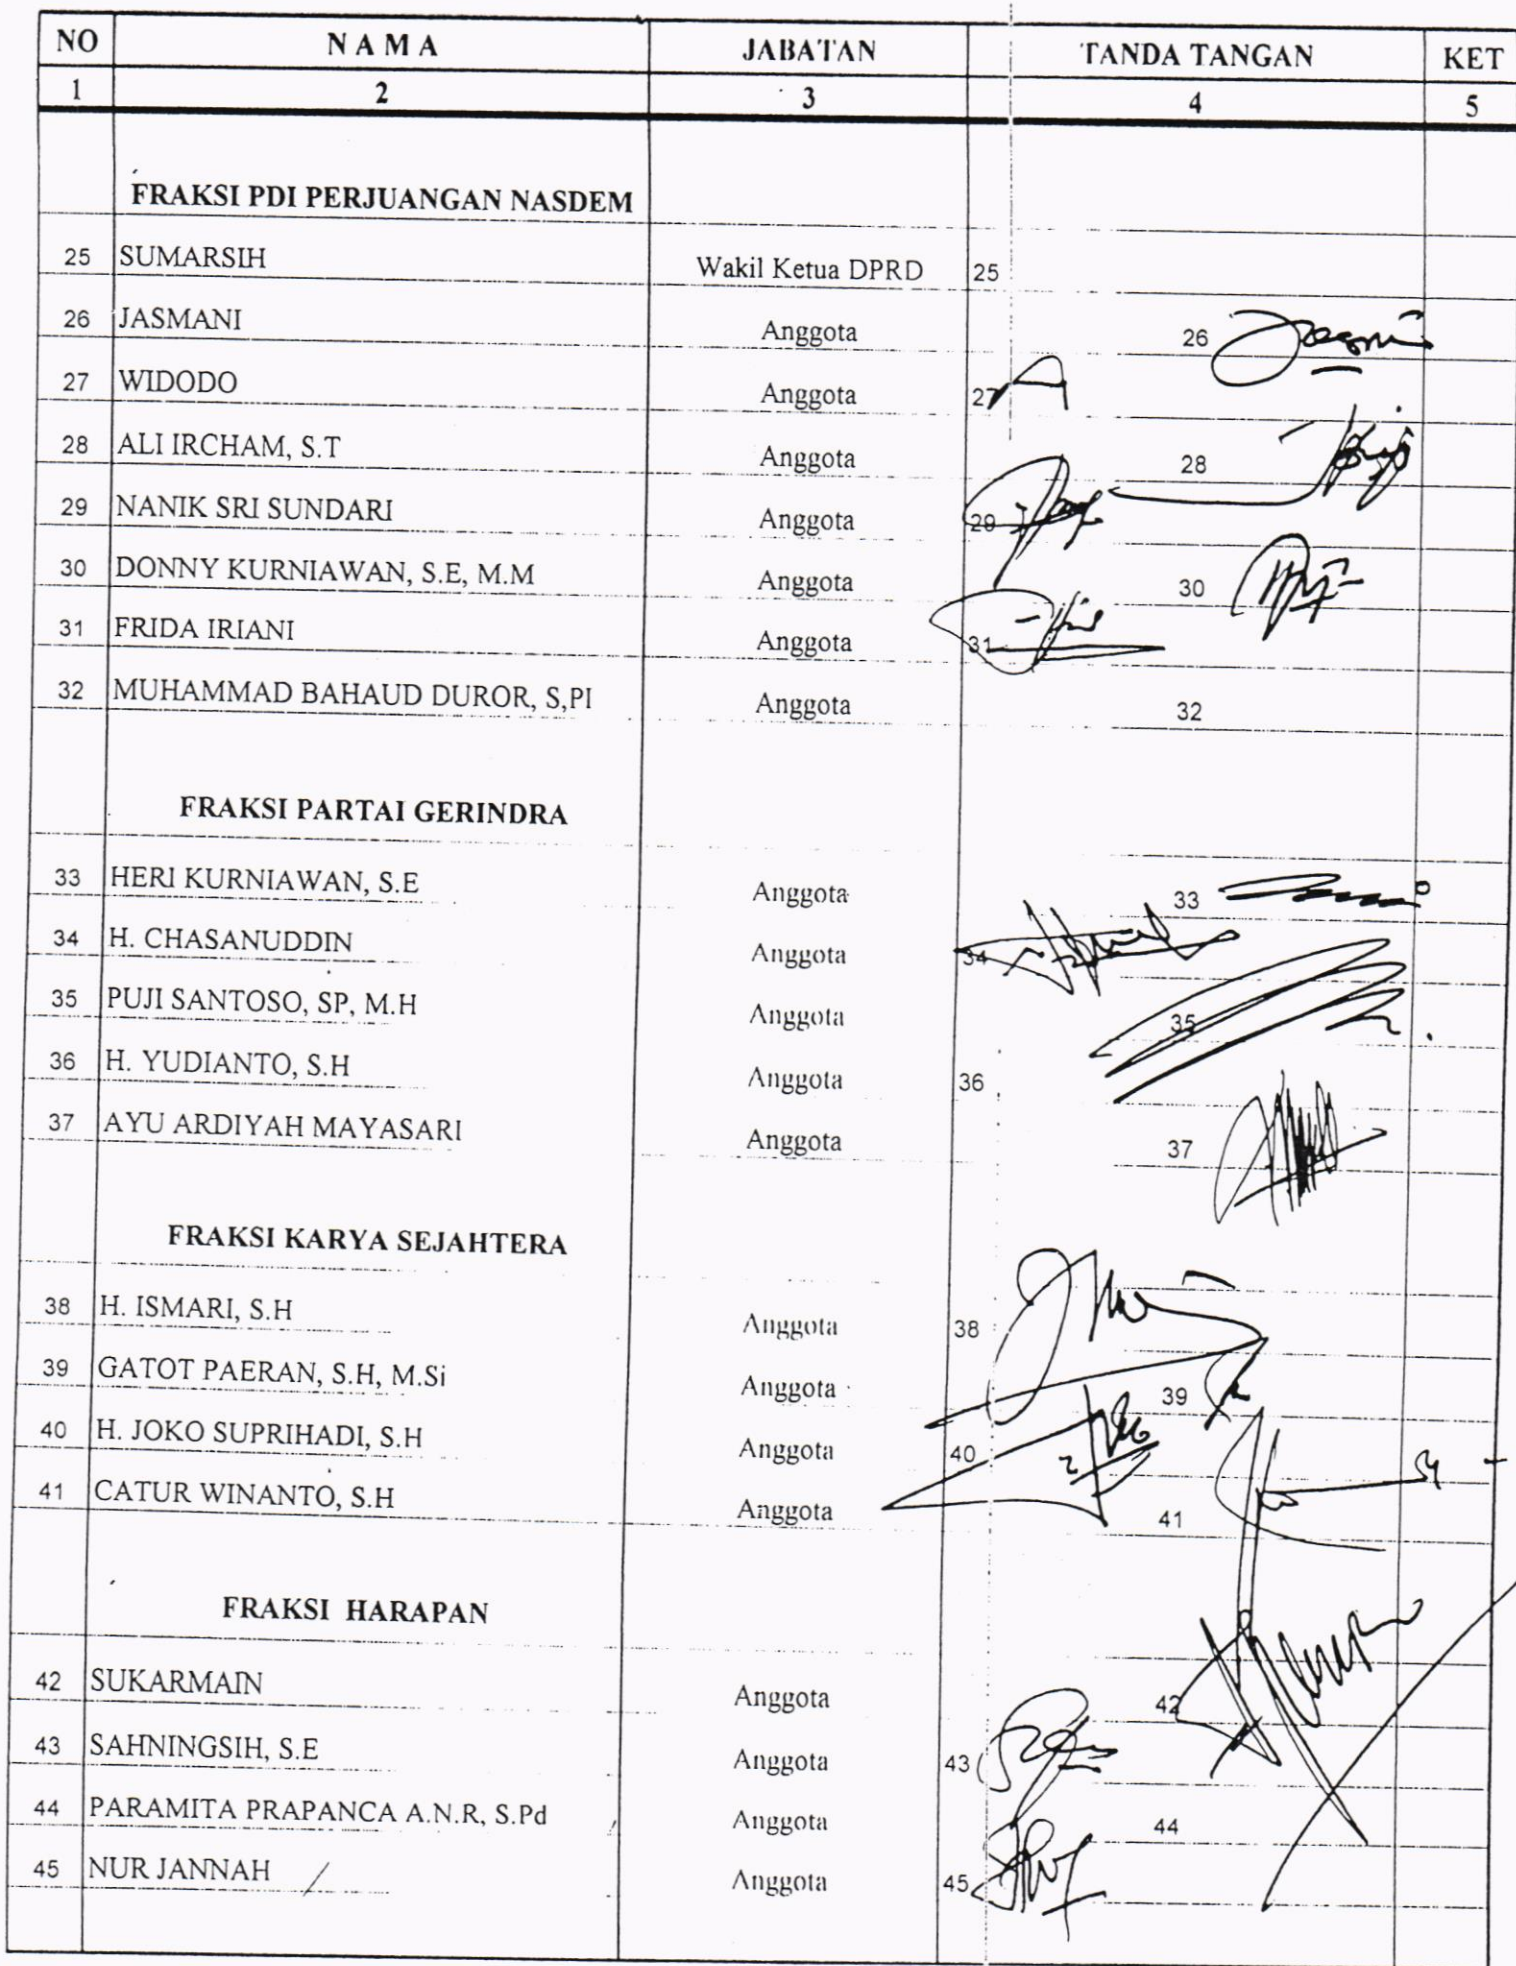 NO N A M A JABATAN TANDA TANGAN KET
1 2 3 4 5
FRAKSI PDI PERJUANGAN NASDEM
25 SUMARSIH Wakil Ketua DPRD 25
26 JASMANI Anggota 26
27 WIDODO Anggota 27
28 ALI IRCHAM, S.T Anggota 28
29 NANIK SRI SUNDARI Anggota 29
30 DONNY KURNIAWAN, S.E, M.M Anggota 30
31 FRIDA IRIANI Anggota 31
32 MUHAMMAD BAHAUD DUROR, S,PI Anggota 32
FRAKSI PARTAI GERINDRA
33 HERI KURNIAWAN, S.E Anggota 33
34 H. CHASANUDDIN Anggota 34
35 PUJI SANTOSO, SP, M.H Anggota 35
36 H. YUDIANTO, S.H Anggota 36
37 AYU ARDIYAH MAYASARI Anggota 37
FRAKSI KARYA SEJAHTERA
38 H. ISMARI, S.H Anggota 38
39 GATOT PAERAN, S.H, M.Si Anggota 39
40 H. JOKO SUPRIHADI, S.H Anggota 40
41 CATUR WINANTO, S.H Anggota 41
FRAKSI HARAPAN
42 SUKARMAIN Anggota 42
43 SAHNINGSIH, S.E Anggota 43
44 PARAMITA PRAPANCA A.N.R, S.Pd Anggota 44
45 NUR JANNAH Anggota 45